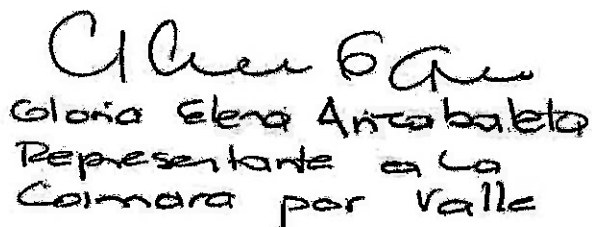 Gloria Elena Arizabaleta
Representante a la
Camara por Valle